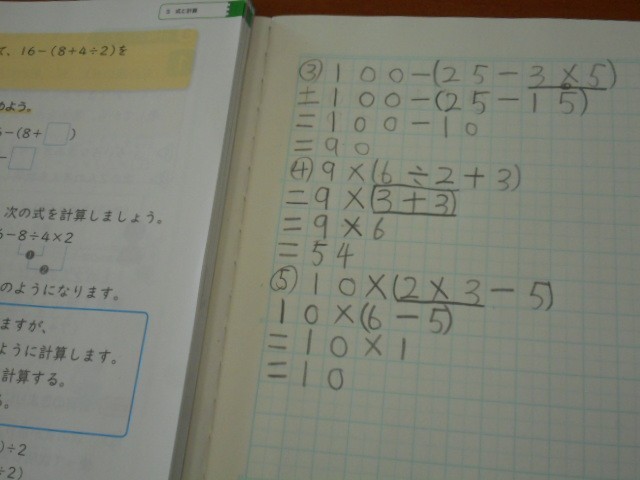 9 式と計算
て、16-(8+4÷2)を
めよう。
-(8+□)
-□
次の式を計算しましょう。
6-8÷4×2
❶
❷
のようになります。
ますが、
ように計算します。
計算する。
る。
)÷2
÷2)
③100-(25-3×5)
=100-(25-15)
=100-10
=90
④9×(6÷2+3)
=9×(3+3)
=9×6
=54
⑤10×(2×3-5)
10×(6-5)
=10×1
=10